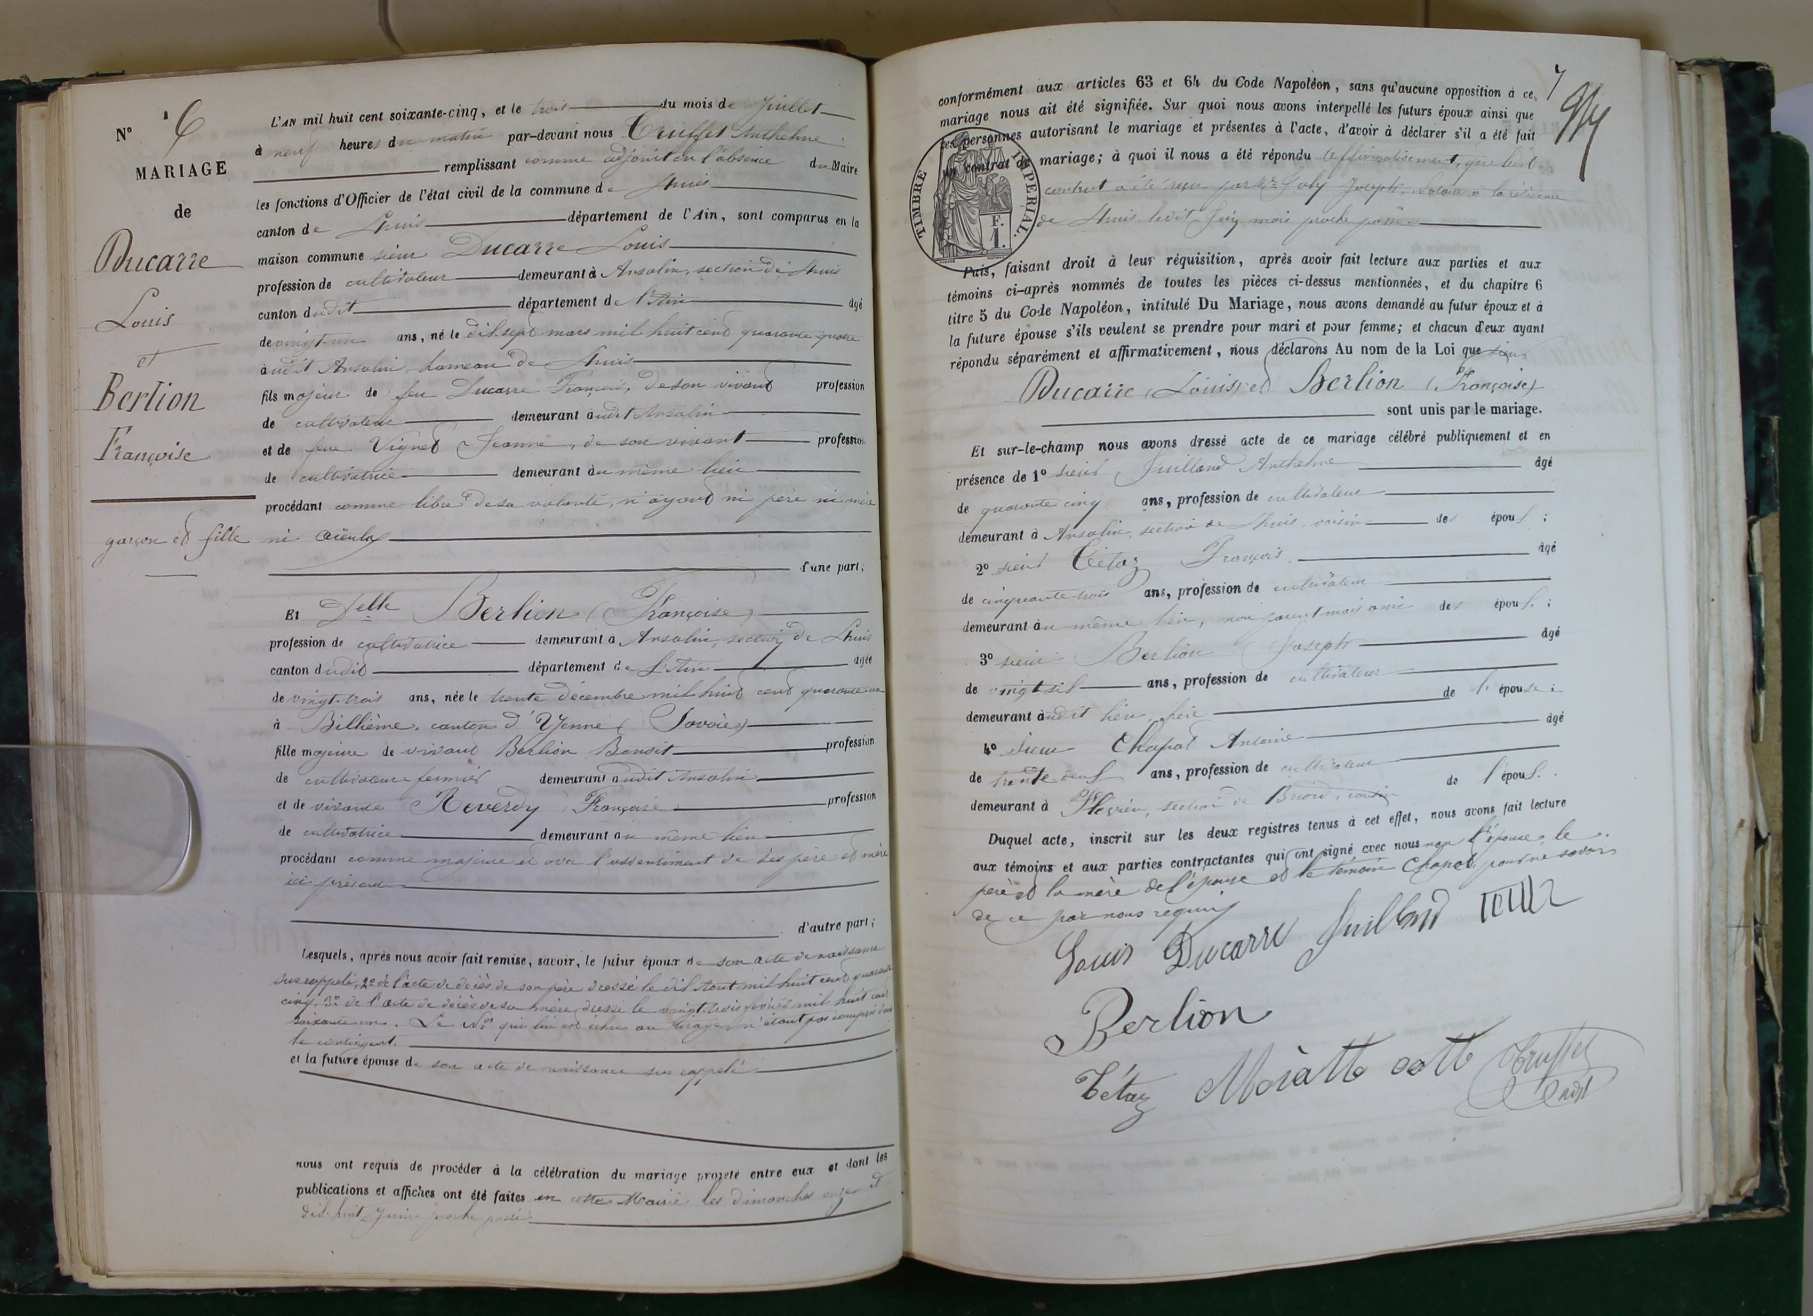 N° 6
MARIAGE
de
Ducarre
Louis
et
Berlion
Françoise
garçon et fille
L'AN mil huit cent soixante-cinq, et le trois du mois de Juillet
à neuf heures du matin par-devant nous Truffet Anthelme
remplissant comme adjoint en l'absence du Maire
les fonctions d'Officier de l'état civil de la commune de Lhuis
canton de Lhuis département de l'Ain, sont comparus en la
maison commune sieur Ducarre Louis
profession de cultivateur demeurant à Ansolin, section de Lhuis
canton dudit département de l'Ain âgé
de vingt-un ans, né le dix sept mars mil huit cent quarante quatre
audit Ansolin hameau de Lhuis
fils majeur de feu Ducarre François, de son vivant profession
de cultivateur demeurant audit Ansolin
et de feue Vignet Jeanne, de son vivant profession
de cultivatrice demeurant au même lieu
procédant comme libre de sa volonté, n'ayant ni père ni mère
ni aïeuls
d'une part;
Et Delle Berlion (Françoise)
profession de cultivatrice demeurant à Ansolin, section de Lhuis
canton dudit département de l'Ain âgée
de vingt-trois ans, née le trente décembre mil huit cent quarante un
à Bilhième, canton d'Yenne (Savoie)
fille majeure de vivant Berlion Benoit profession
de cultivateur fermier demeurant audit Ansolin
et de vivante Reverdy Françoise profession
de cultivatrice demeurant au même lieu
procédant comme majeure et avec l'assentiment de ses père et mère
ici présents
d'autre part;
Lesquels, après nous avoir fait remise, savoir, le futur époux de son acte de naissance
sus rappelé, 2° de l'acte de décès de son père dressé le dix Aout mil huit cent quarante
cinq. 3° de l'acte de décès de sa mère, dressé le vingt-trois février mil huit cent
soixante un. Le N° qui lui est échu au tirage n'étant pas compris dans
le contingent.
et la future épouse de son acte de naissance sus rappelé
nous ont requis de procéder à la célébration du mariage projeté entre eux et dont les
publications et affiches ont été faites en cette Mairie les dimanches onze et
dix huit Juin proche passé
7
conformément aux articles 63 et 64 du Code Napoléon, sans qu'aucune opposition à ce
mariage nous ait été signifiée. Sur quoi nous avons interpellé les futurs époux ainsi que
les personnes autorisant le mariage et présentes à l'acte, d'avoir à déclarer s'il a été fait
un contrat de mariage; à quoi il nous a été répondu affirmativement, que ledit
contrat a été reçu par Me Joseph, Notaire à la résidence
de Lhuis le dit Juin mois proche passé
TIMBRE IMPERIAL.
F.
1.
Puis, faisant droit à leur réquisition, après avoir fait lecture aux parties et aux
témoins ci-après nommés de toutes les pièces ci-dessus mentionnées, et du chapitre 6
titre 5 du Code Napoléon, intitulé Du Mariage, nous avons demandé au futur époux et à
la future épouse s'ils veulent se prendre pour mari et pour femme; et chacun d'eux ayant
répondu séparément et affirmativement, nous déclarons Au nom de la Loi que sieur
Ducarre (Louis) et Berlion (Françoise)
sont unis par le mariage.
Et sur-le-champ nous avons dressé acte de ce mariage célébré publiquement et en
présence de 1° sieur Juilland Anthelme âgé
de quarante cinq ans, profession de cultivateur
demeurant à Ansolin, section de Lhuis, voisin des époux;
2° sieur Tétaz François âgé
de cinquante-trois ans, profession de cultivateur
demeurant au même lieu, non parent mais ami des époux;
3° sieur Berlion Joseph âgé
de vingt six ans, profession de cultivateur
demeurant audit lieu, frère de l'épouse;
4° sieur Chapot Antoine âgé
de trente deux ans, profession de cultivateur
demeurant à Flévieu, section de Briord, cousin de l'époux.
Duquel acte, inscrit sur les deux registres tenus à cet effet, nous avons fait lecture
aux témoins et aux parties contractantes qui ont signé avec nous non l'épouse, le
père et la mère de l'épouse et le témoin Chapot pour ne savoir
de ce par nous requis
Louis Ducarre Juilland
Berlion
Tétaz Truffet
Adjt